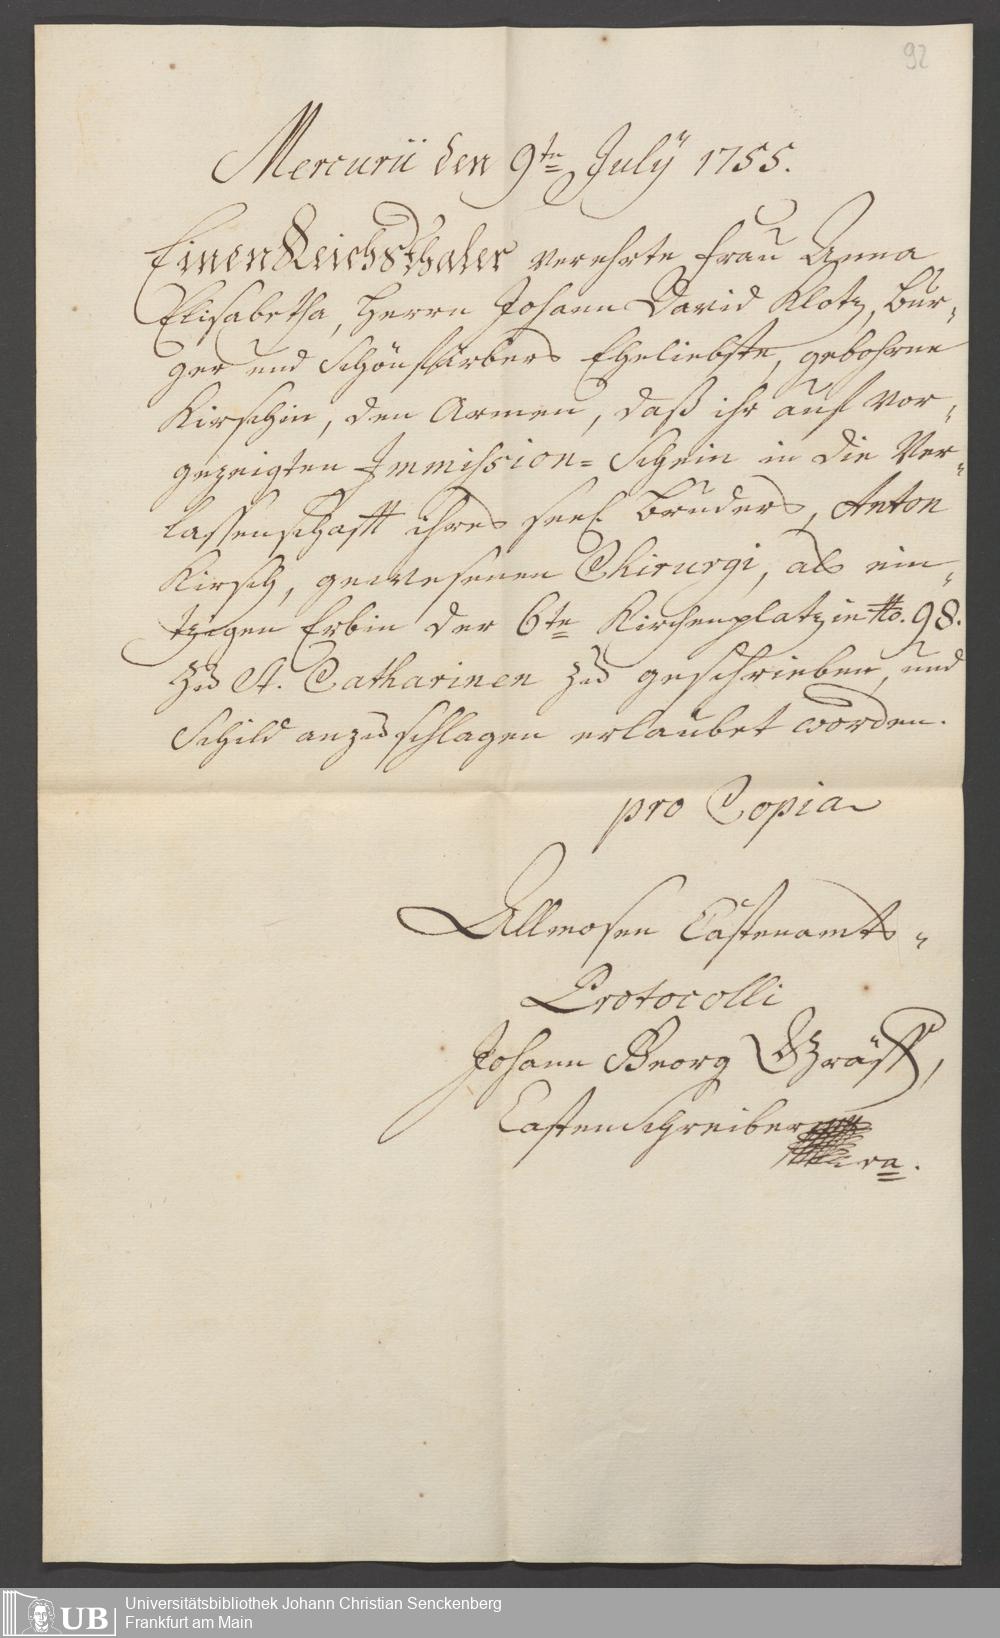 92
Mercurii den 9te July 1755.
Einen Reichsthaler verehrte Frau Anna
Elisabetha, Herrn Johann David Klotz, Bur-
ger und Schönfärbers Eheliebste, gebohrne
Kirschin, den Armen, daß ihr auf vor-
gezeigten Immission-Schein in die Ver-
lassenschafft ihres seel. Bruders, Anton
Kirsch, gewesenen Chirurgi, als ein-
tzigen Erbin der 6te Kirchenplatz in No. 98.
zu St. Catharinen zu geschrieben, und
Schild anzuschlagen erlaubet worden.
pro Copia
Allmosen Castenamts-
Protocolli
Johann Georg Gräff,
Castenschreiber
UB
Universitätsbibliothek Johann Christian Senckenberg
Frankfurt am Main